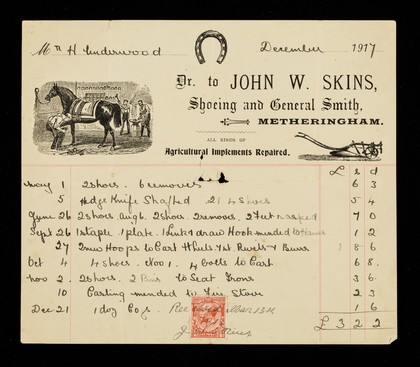 Mr H Underwood December 1917
Dr. to JOHN W. SKINS,
Shoeing and General Smith,
METHERINGHAM.
ALL KINDS OF
Agricultural Implements Repaired.
£ s d
May 1 2 shoes 6 removes 6 3
5 Hedge Knife Shafted 4 shoes 5 4
June 26 2 shoes Aug 6 2 shoes 2 removes 2 Feet rasped 7 0
Sept 26 1 staple 1 plate 1 link draw Hook mended 1 2
27 2 new Hoops to Cart Wheels 1 8 6
Oct 4 4 shoes Nov 1 4 bolts to Cart 6 8
Nov 2 2 shoes 2 Pins to Seat Irons 3 6
10 Casting mended for Fire Stove 2 3
Dec 21 1 day 6 1 6
£ 3 2 2